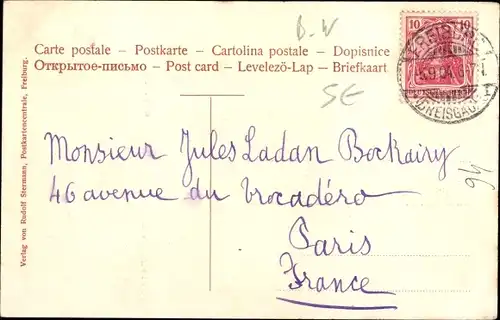 B-W
Carte postale – Postkarte – Cartolina postale – Dopisnice
Открытое-письмо – Post card – Levelező-Lap – Briefkaart
10 10
FREIBURG
BREISGAU
SE
94
Monsieur Jules Ladan Bockairy
46 avenue du Trocadéro
Paris
France
Verlag von Rudolf Stermann, Postkartencentrale, Freiburg.